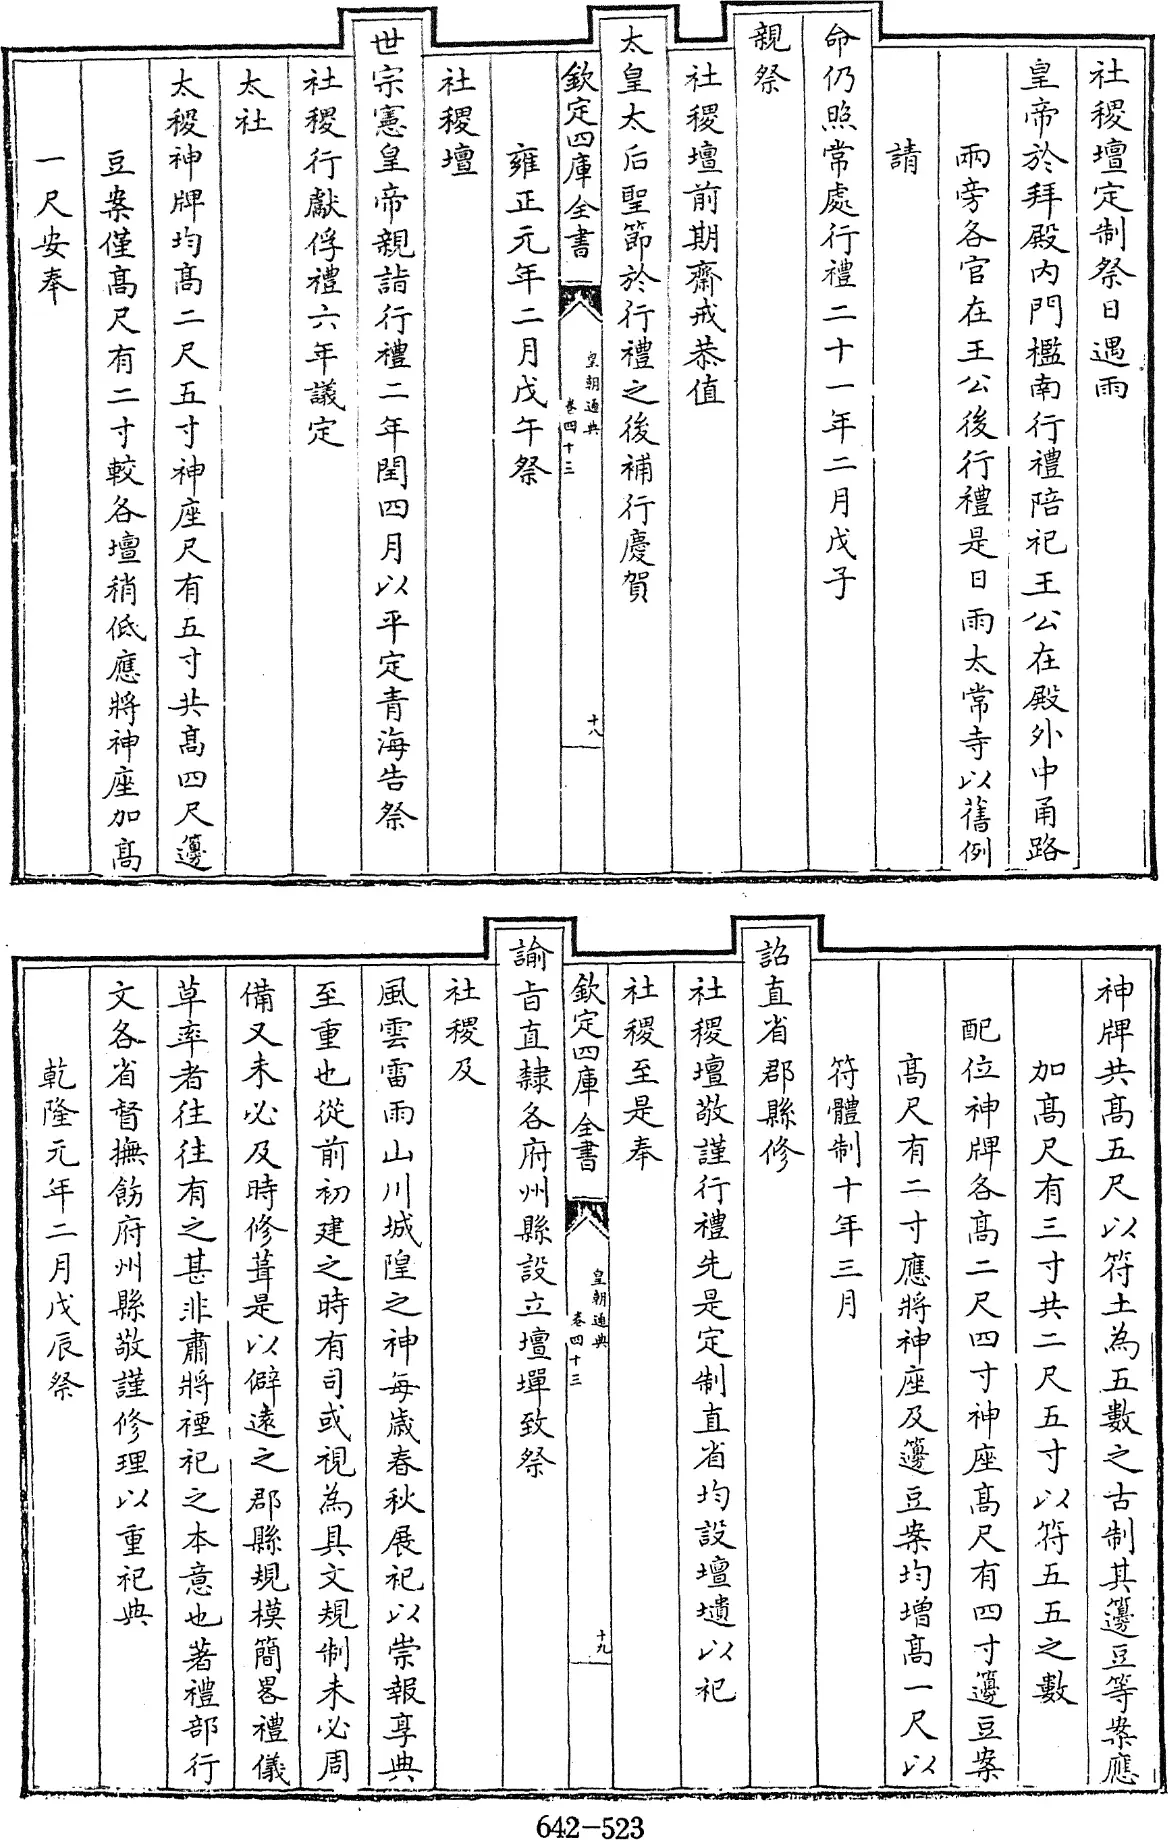 社稷壇定制祭日遇雨
皇帝於拜殿内門檻南行禮陪祀王公在殿外中甬路
兩旁各官在王公後行禮是日雨太常寺以舊例
請
命仍照常處行禮二十一年二月戊子
親祭
社稷壇前期齋戒恭值
太皇太后聖節於行禮之後補行慶賀
欽定四庫全書
皇朝通典
卷四十三
十八
雍正元年二月戊午祭
社稷壇
世宗憲皇帝親詣行禮二年閏四月以平定青海告祭
社稷行獻俘禮六年議定
太社
太稷神牌均髙二尺五寸神座尺有五寸共髙四尺籩
豆案僅髙尺有二寸較各壇稍低應將神座加髙
一尺安奉
神牌共髙五尺以符土為五數之古制其籩豆等案應
加髙尺有三寸共二尺五寸以符五五之數
配位神牌各髙二尺四寸神座髙尺有四寸籩豆案
髙尺有二寸應將神座及籩豆案均增髙一尺以
符體制十年三月
詔直省郡縣修
社稷壇敬謹行禮先是定制直省均設壇壝以祀
社稷至是奉
欽定四庫全書
皇朝通典
卷四十三
十九
諭旨直隸各府州縣設立壇墠致祭
社稷及
風雲雷雨山川城隍之神每歲春秋展祀以崇報享典
至重也從前初建之時有司或視為具文規制未必周
備又未必及時修葺是以僻逺之郡縣規模簡畧禮儀
草率者往往有之甚非肅將禋祀之本意也著禮部行
文各省督撫飭府州縣敬謹修理以重祀典
乾隆元年二月戊辰祭
642-523